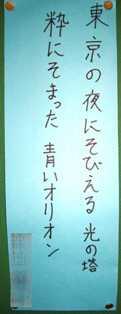 東京の夜にそびえる 光の塔
粋にそまった 青いオリオン